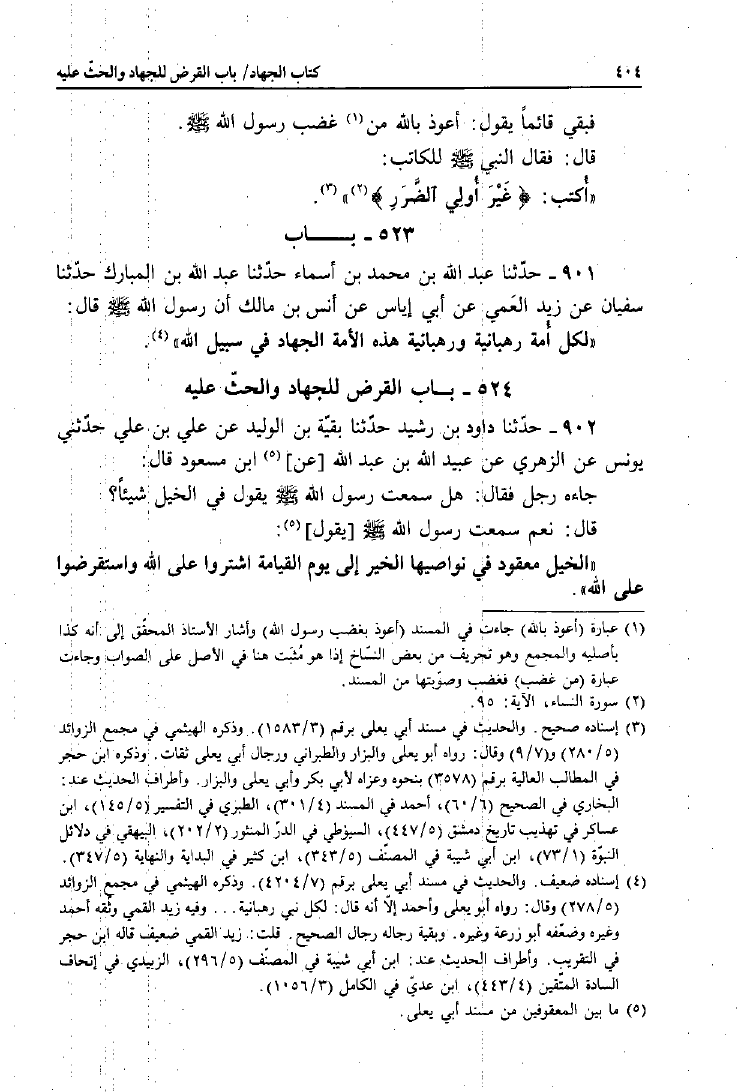 ٤٠٤ كتاب الجهاد/ باب القرض للجهاد والحثّ عليه
فبقي قائماً يقول: أعوذ بالله من(١) غضب رسول الله ﷺ.
قال: فقال النبي ﷺ للكاتب:
«أُكتب: ﴿ غَيْرَ أُولِي ٱلضَّرَرِ ﴾(٢)»(٣).
٥٢٣ - بـــــاب
٩٠١ - حدّثنا عبد الله بن محمد بن أسماء حدّثنا عبد الله بن المبارك حدّثنا
سفيان عن زيد العَمي عن أبي إياس عن أنس بن مالك أن رسول الله ﷺ قال:
«لكل أُمة رهبانية ورهبانية هذه الأمة الجهاد في سبيل الله»(٤).
٥٢٤ - بـــاب القرض للجهاد والحثّ عليه
٩٠٢ - حدّثنا داود بن رشيد حدّثنا بقيّة بن الوليد عن علي بن علي حدّثني
يونس عن الزهري عن عبيد الله بن عبد الله [عن](٥) ابن مسعود قال:
جاءه رجل فقال: هل سمعت رسول الله ﷺ يقول في الخيل شيئاً؟
قال: نعم سمعت رسول الله ﷺ [يقول](٥):
«الخيل معقود في نواصيها الخير إلى يوم القيامة اشتروا على الله واستقرضوا
على الله».
(١) عبارة (أعوذ بالله) جاءت في المسند (أعوذ بغضب رسول الله) وأشار الأستاذ المحقّق إلى أنه كذا
بأصليه والمجمع وهو تحريف من بعض النسّاخ إذا هو مُثبَت هنا في الأصل على الصواب وجاءت
عبارة (من غضب) فغضب وصوّبتها من المسند.
(٢) سورة النساء، الآية: ٩٥.
(٣) إسناده صحيح. والحديث في مسند أبي يعلى برقم (١٥٨٣/٣). وذكره الهيثمي في مجمع الزوائد
(٢٨٠/٥) و(٩/٧) وقال: رواه أبو يعلى والبزار والطبراني ورجال أبي يعلى ثقات. وذكره ابن حجر
في المطالب العالية برقم (٣٥٧٨) بنحوه وعزاه لأبي بكر وأبي يعلى والبزار. وأطراف الحديث عند:
البخاري في الصحيح (٦٠/٦)، أحمد في المسند (٣٠١/٤)، الطبري في التفسير (١٤٥/٥)، ابن
عساكر في تهذيب تاريخ دمشق (٤٤٧/٥)، السيوطي في الدرّ المنثور (٢٠٢/٢)، البيهقي في دلائل
النبوّة (٧٣/١)، ابن أبي شيبة في المصنّف (٣٤٣/٥)، ابن كثير في البداية والنهاية (٣٤٧/٥).
(٤) إسناده ضعيف. والحديث في مسند أبي يعلى برقم (٤٢٠٤/٧). وذكره الهيثمي في مجمع الزوائد
(٢٧٨/٥) وقال: رواه أبو يعلى وأحمد إلّا أنه قال: لكل نبي رهبانية... وفيه زيد القمي وثّقه أحمد
وغيره وضعّفه أبو زرعة وغيره. وبقية رجاله رجال الصحيح. قلت: زيد القمي ضعيف قاله ابن حجر
في التقريب. وأطراف الحديث عند: ابن أبي شيبة في المصنّف (٢٩٦/٥)، الزبيدي في إتحاف
السادة المتّقين (٤٤٣/٤)، ابن عديّ في الكامل (١٠٥٦/٣).
(٥) ما بين المعقوفين من مسند أبي يعلى.